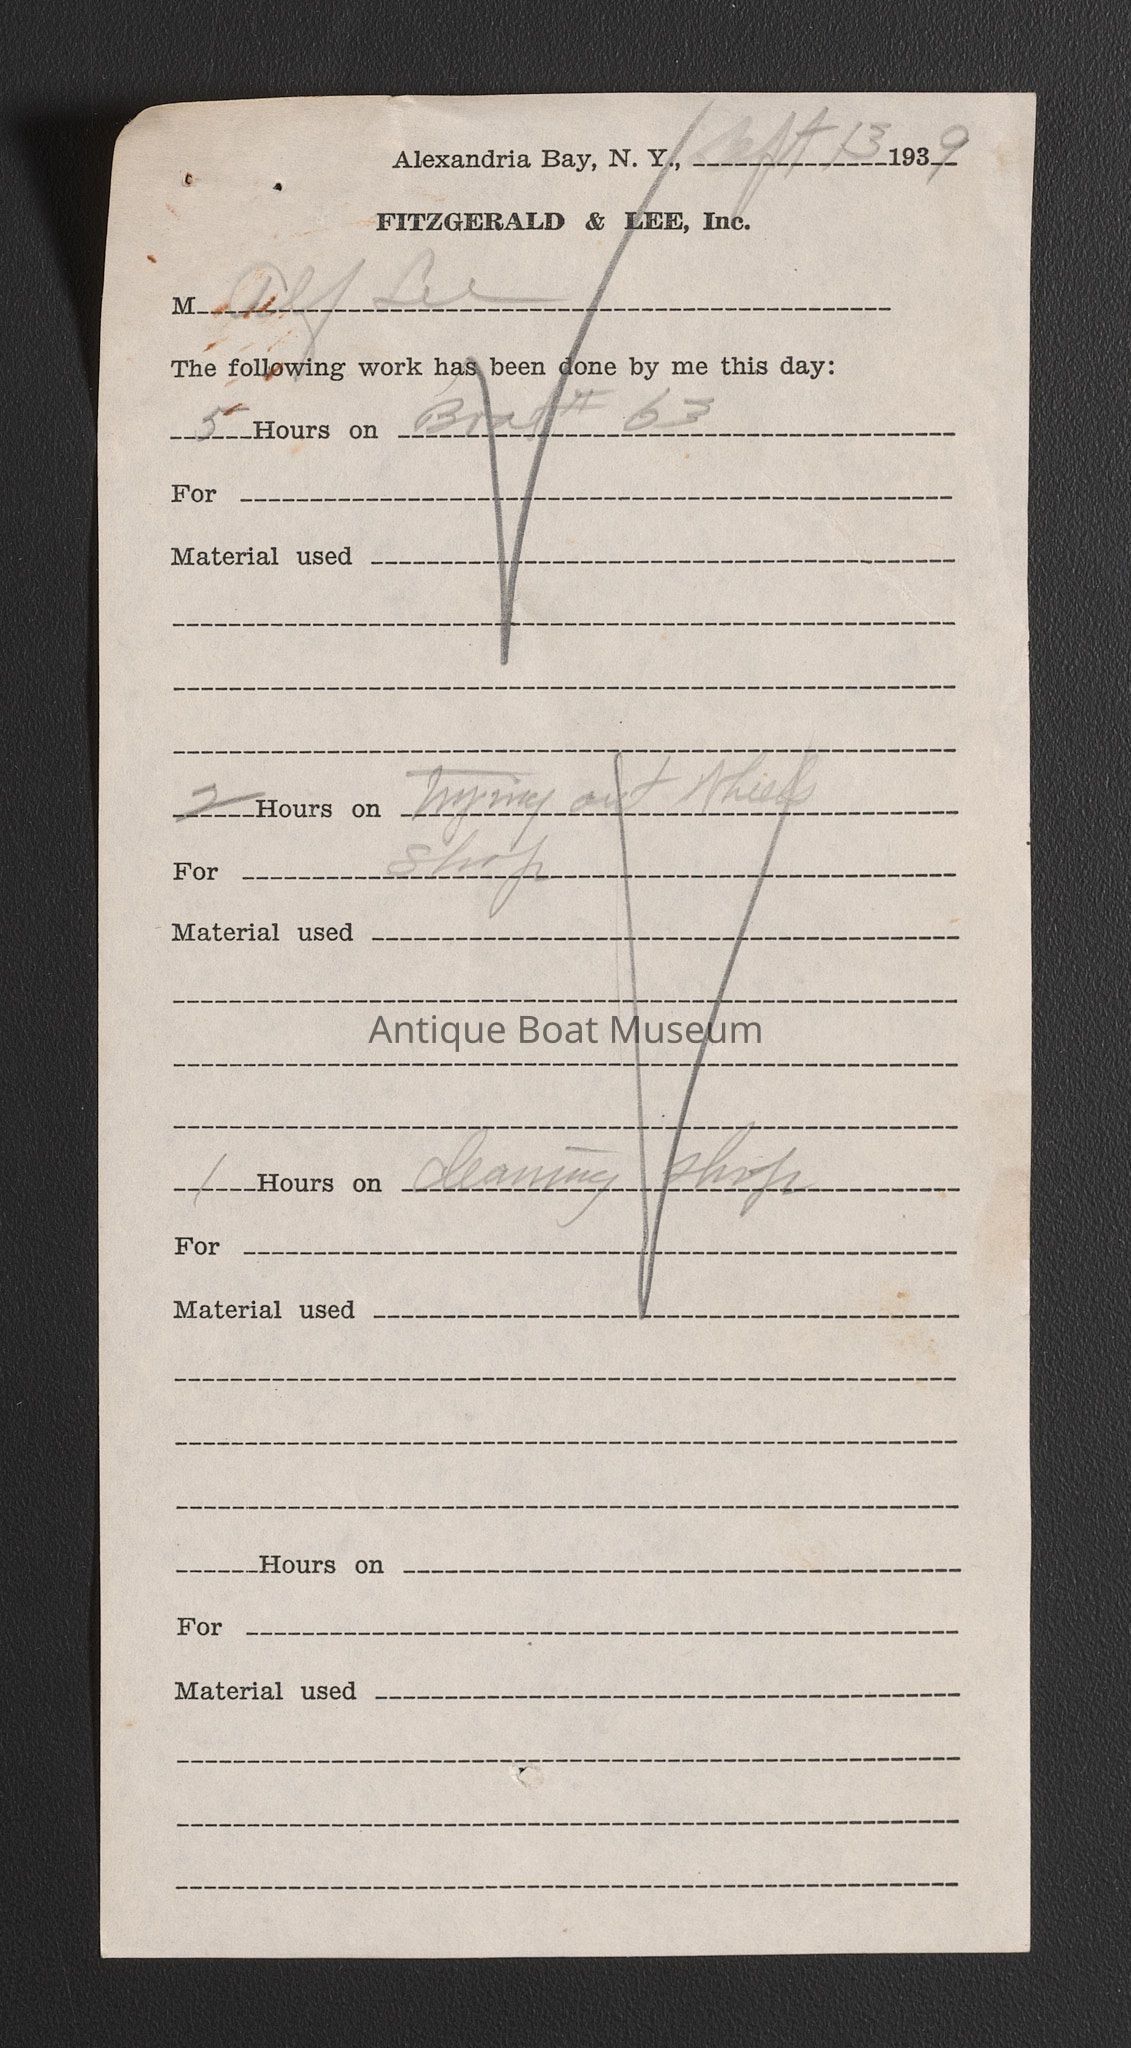 Alexandria Bay, N. Y., Sept 13 1939
FITZGERALD & LEE, Inc.
M Alf Lee
The following work has been done by me this day:
5 Hours on Boat # 63
For
Material used
2 Hours on Trying out Wheels
For shop
Material used
Antique Boat Museum
1 Hours on Cleaning shop
For
Material used
Hours on
For
Material used